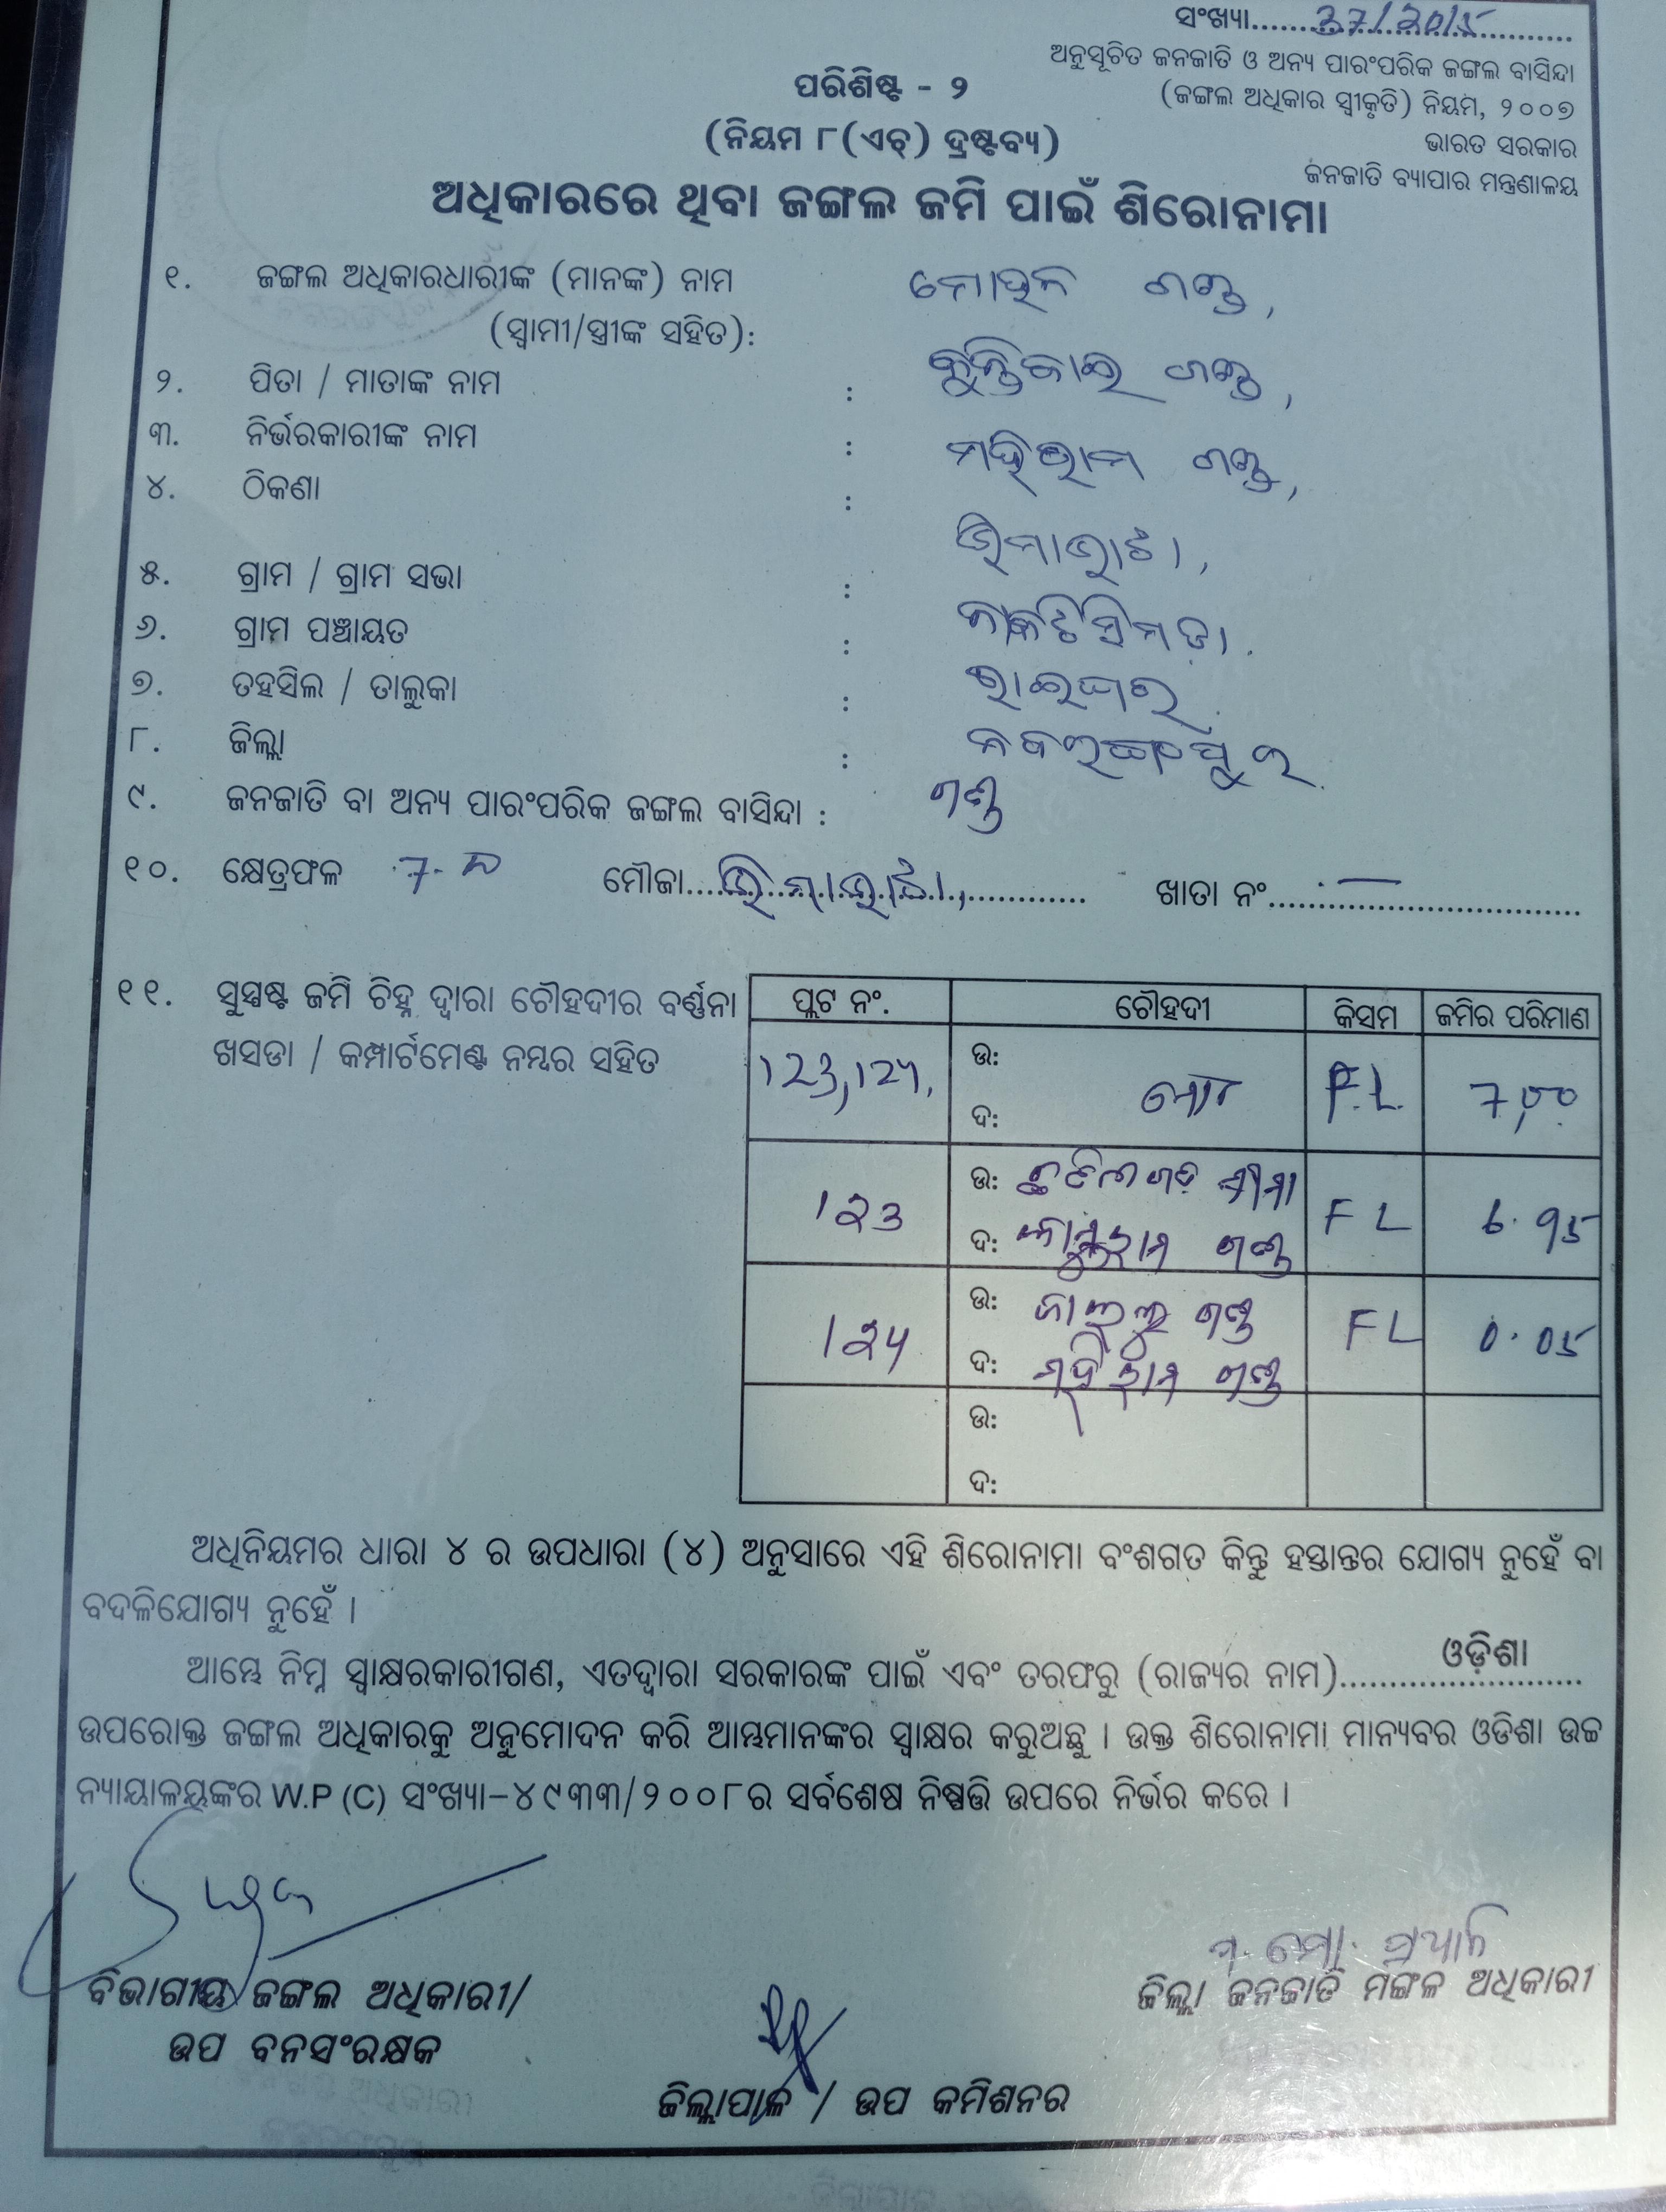 ସଂଖ୍ୟା.......37/2015..........
ଅନୁସୂଚିତ ଜନଜାତି ଓ ଅନ୍ୟ ପାରଂପରିକ ଜଙ୍ଗଲ ବାସିନ୍ଦା
(ଜଙ୍ଗଲ ଅଧିକାର ସ୍ୱୀକୃତି) ନିୟମ, ୨୦୦୭
ଭାରତ ସରକାର
ଜନଜାତି ବ୍ୟାପାର ମନ୍ତ୍ରଣାଳୟ
ପରିଶିଷ୍ଟ - ୨
(ନିୟମ ୮(ଏଚ୍) ଦ୍ରଷ୍ଟବ୍ୟ)
ଅଧିକାରରେ ଥିବା ଜଙ୍ଗଲ ଜମି ପାଇଁ ଶିରୋନାମା
୧. ଜଙ୍ଗଲ ଅଧିକାରଧାରୀଙ୍କ (ମାନଙ୍କ) ନାମ ମୋହନ ଗଣ୍ଡ,
(ସ୍ୱାମୀ/ସ୍ତ୍ରୀଙ୍କ ସହିତ):
୨. ପିତା / ମାତାଙ୍କ ନାମ : ଗଣ୍ଡ,
୩. ନିର୍ଭରକାରୀଙ୍କ ନାମ : ଗଣ୍ଡ,
୪. ଠିକଣା :
୫. ଗ୍ରାମ / ଗ୍ରାମ ସଭା :
୬. ଗ୍ରାମ ପଞ୍ଚାୟତ :
୭. ତହସିଲ / ତାଲୁକା : ରାଇଘର
୮. ଜିଲ୍ଲା : ନବରଙ୍ଗପୁର
୯. ଜନଜାତି ବା ଅନ୍ୟ ପାରଂପରିକ ଜଙ୍ଗଲ ବାସିନ୍ଦା : ଗଣ୍ଡ
୧୦. କ୍ଷେତ୍ରଫଳ ମୌଜା.................... ଖାତା ନଂ....................
୧୧. ସୁସ୍ପଷ୍ଟ ଜମି ଚିହ୍ନ ଦ୍ୱାରା ଚୌହଦୀର ବର୍ଣ୍ଣନା
ଖସଡା / କମ୍ପାର୍ଟମେଣ୍ଟ ନମ୍ବର ସହିତ
ପ୍ଲଟ ନଂ. ଚୌହଦୀ କିସମ ଜମିର ପରିମାଣ
123,124, ଉ: ଦ: ମୋଟ F.L. 7.00
123 ଉ: ସୀମା F L 6.95
ଦ: ଗଣ୍ଡ
124 ଉ: ଗଣ୍ଡ F L 0.05
ଦ: ଗଣ୍ଡ
ଉ:
ଦ:
ଅଧିନିୟମର ଧାରା ୪ ର ଉପଧାରା (୪) ଅନୁସାରେ ଏହି ଶିରୋନାମା ବଂଶଗତ କିନ୍ତୁ ହସ୍ତାନ୍ତର ଯୋଗ୍ୟ ନୁହେଁ ବା
ବଦଳିଯୋଗ୍ୟ ନୁହେଁ ।
ଆମ୍ଭେ ନିମ୍ନ ସ୍ୱାକ୍ଷରକାରୀଗଣ, ଏତଦ୍ୱାରା ସରକାରଙ୍କ ପାଇଁ ଏବଂ ତରଫରୁ (ରାଜ୍ୟର ନାମ)........ଓଡ଼ିଶା........
ଉପରୋକ୍ତ ଜଙ୍ଗଲ ଅଧିକାରକୁ ଅନୁମୋଦନ କରି ଆମ୍ଭମାନଙ୍କର ସ୍ୱାକ୍ଷର କରୁଅଛୁ । ଉକ୍ତ ଶିରୋନାମା ମାନ୍ୟବର ଓଡିଶା ଉଚ୍ଚ
ନ୍ୟାୟାଳୟଙ୍କର W.P (C) ସଂଖ୍ୟା-୪୯୩୩/୨୦୦୮ର ସର୍ବଶେଷ ନିଷ୍ପତ୍ତି ଉପରେ ନିର୍ଭର କରେ ।
ବିଭାଗୀୟ ଜଙ୍ଗଲ ଅଧିକାରୀ/
ଉପ ବନସଂରକ୍ଷକ
ଜିଲ୍ଲା ଜନଜାତି ମଙ୍ଗଳ ଅଧିକାରୀ
ଜିଲ୍ଲାପାଳ / ଉପ କମିଶନର